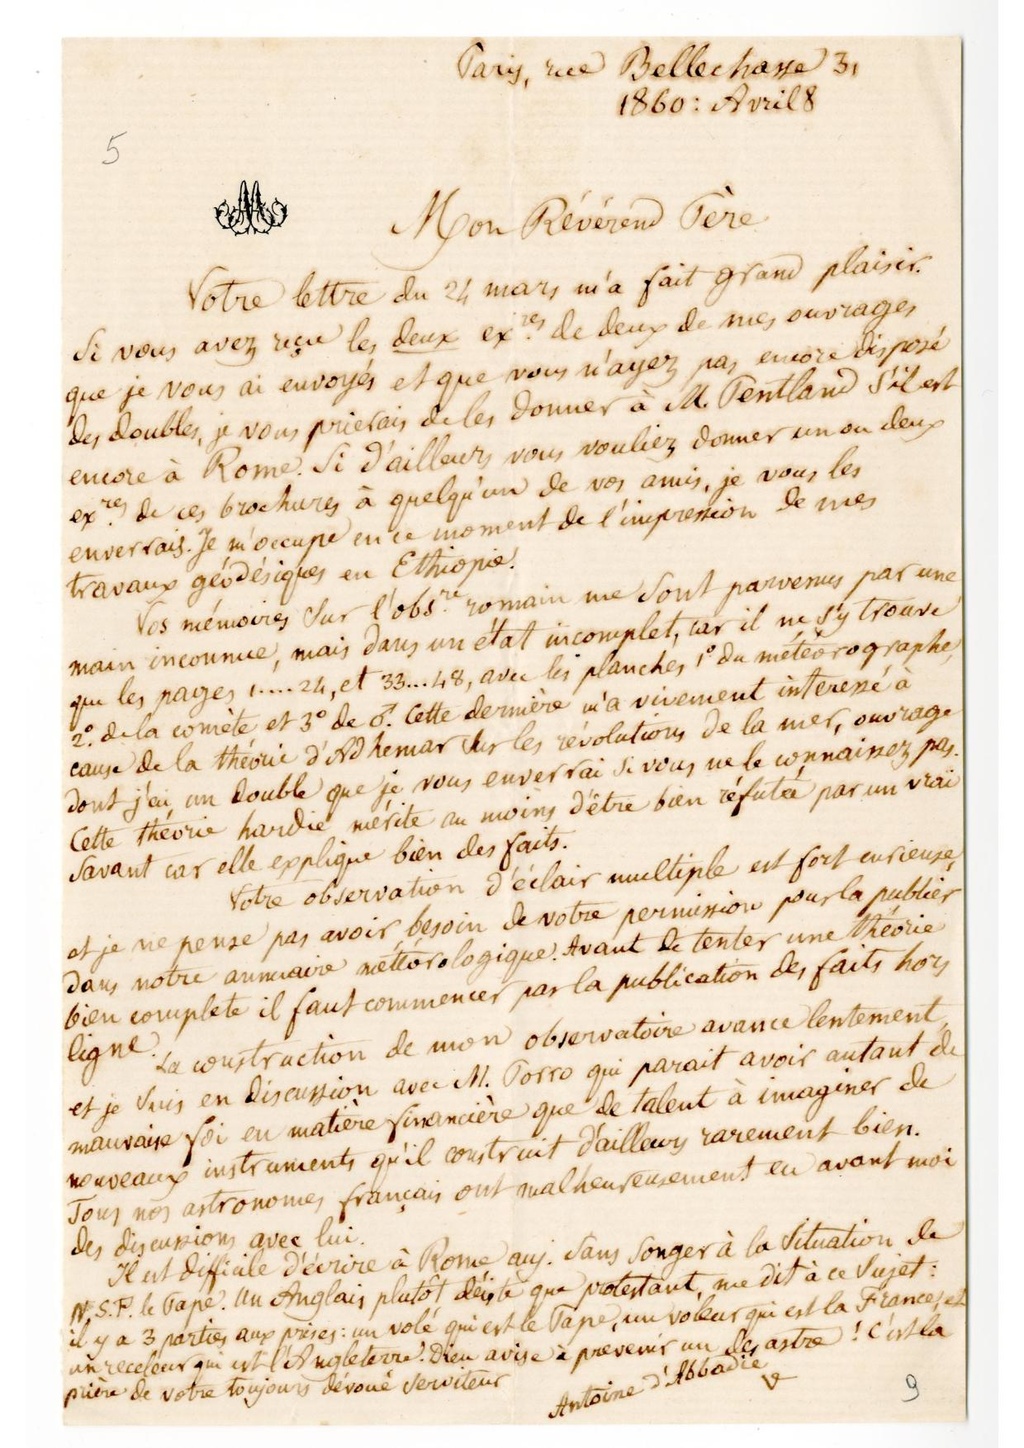 Paris, rue Bellechasse 31
1860: Avril 8
5
Mon Révérend Père
Votre lettre du 24 mars m'a fait grand plaisir.
Si vous avez reçu les deux ex.res de deux de mes ouvrages
que je vous ai envoyés et que vous n'ayez pas encore disposé
des doubles, je vous prierais de les donner à M. Pentland s'il est
encore à Rome. Si d'ailleurs vous vouliez donner un ou deux
ex.res de ces brochures à quelqu'un de vos amis, je vous les
enverrais. Je m'occupe en ce moment de l'impression de mes
travaux géodésiques en Ethiopie.
Vos mémoires sur l'obs.re romain me sont parvenus par une
main inconnue, mais dans un état incomplet, car il ne s'y trouve
que les pages 1.....24, et 33...48, avec les planches 1° du météorographe,
2° de la comète et 3° de ♂. Cette dernière m'a vivement interessé à
cause de la théorie d'Adhemar sur les révolutions de la mer, ouvrage
dont j'ai un double que je vous enverrai si vous ne le connaissez pas.
Cette théorie hardie mérite au moins d'être bien réfutée par un vrai
savant car elle explique bien des faits.
Votre observation d'éclair multiple est fort curieuse
et je ne pense pas avoir besoin de votre permission pour la publier
dans notre annuaire météorologique. Avant de tenter une théorie
bien complete il faut commencer par la publication des faits hors
ligne.
La construction de mon observatoire avance lentement
et je suis en discussion avec M. Porro qui parait avoir autant de
mauvaise foi en matière financière que de talent à imaginer de
nouveaux instruments qu'il construit d'ailleurs rarement bien.
Tous nos astronomes français ont malheureusement eu avant moi
des discussions avec lui.
Il est difficile d'écrire à Rome auj. sans songer à la situation de
N.S.P. le Pape. Un Anglais plutôt déiste que protestant, me dit à ce sujet:
il y a 3 parties aux prises: un volé qui est le Pape, un voleur qui est la France, et
un receleur qui est l'Angleterre. Dieu avise à prevenir un desastre! C'est la
prière de votre toujours dévoué serviteur
Antoine d'Abbadie
9